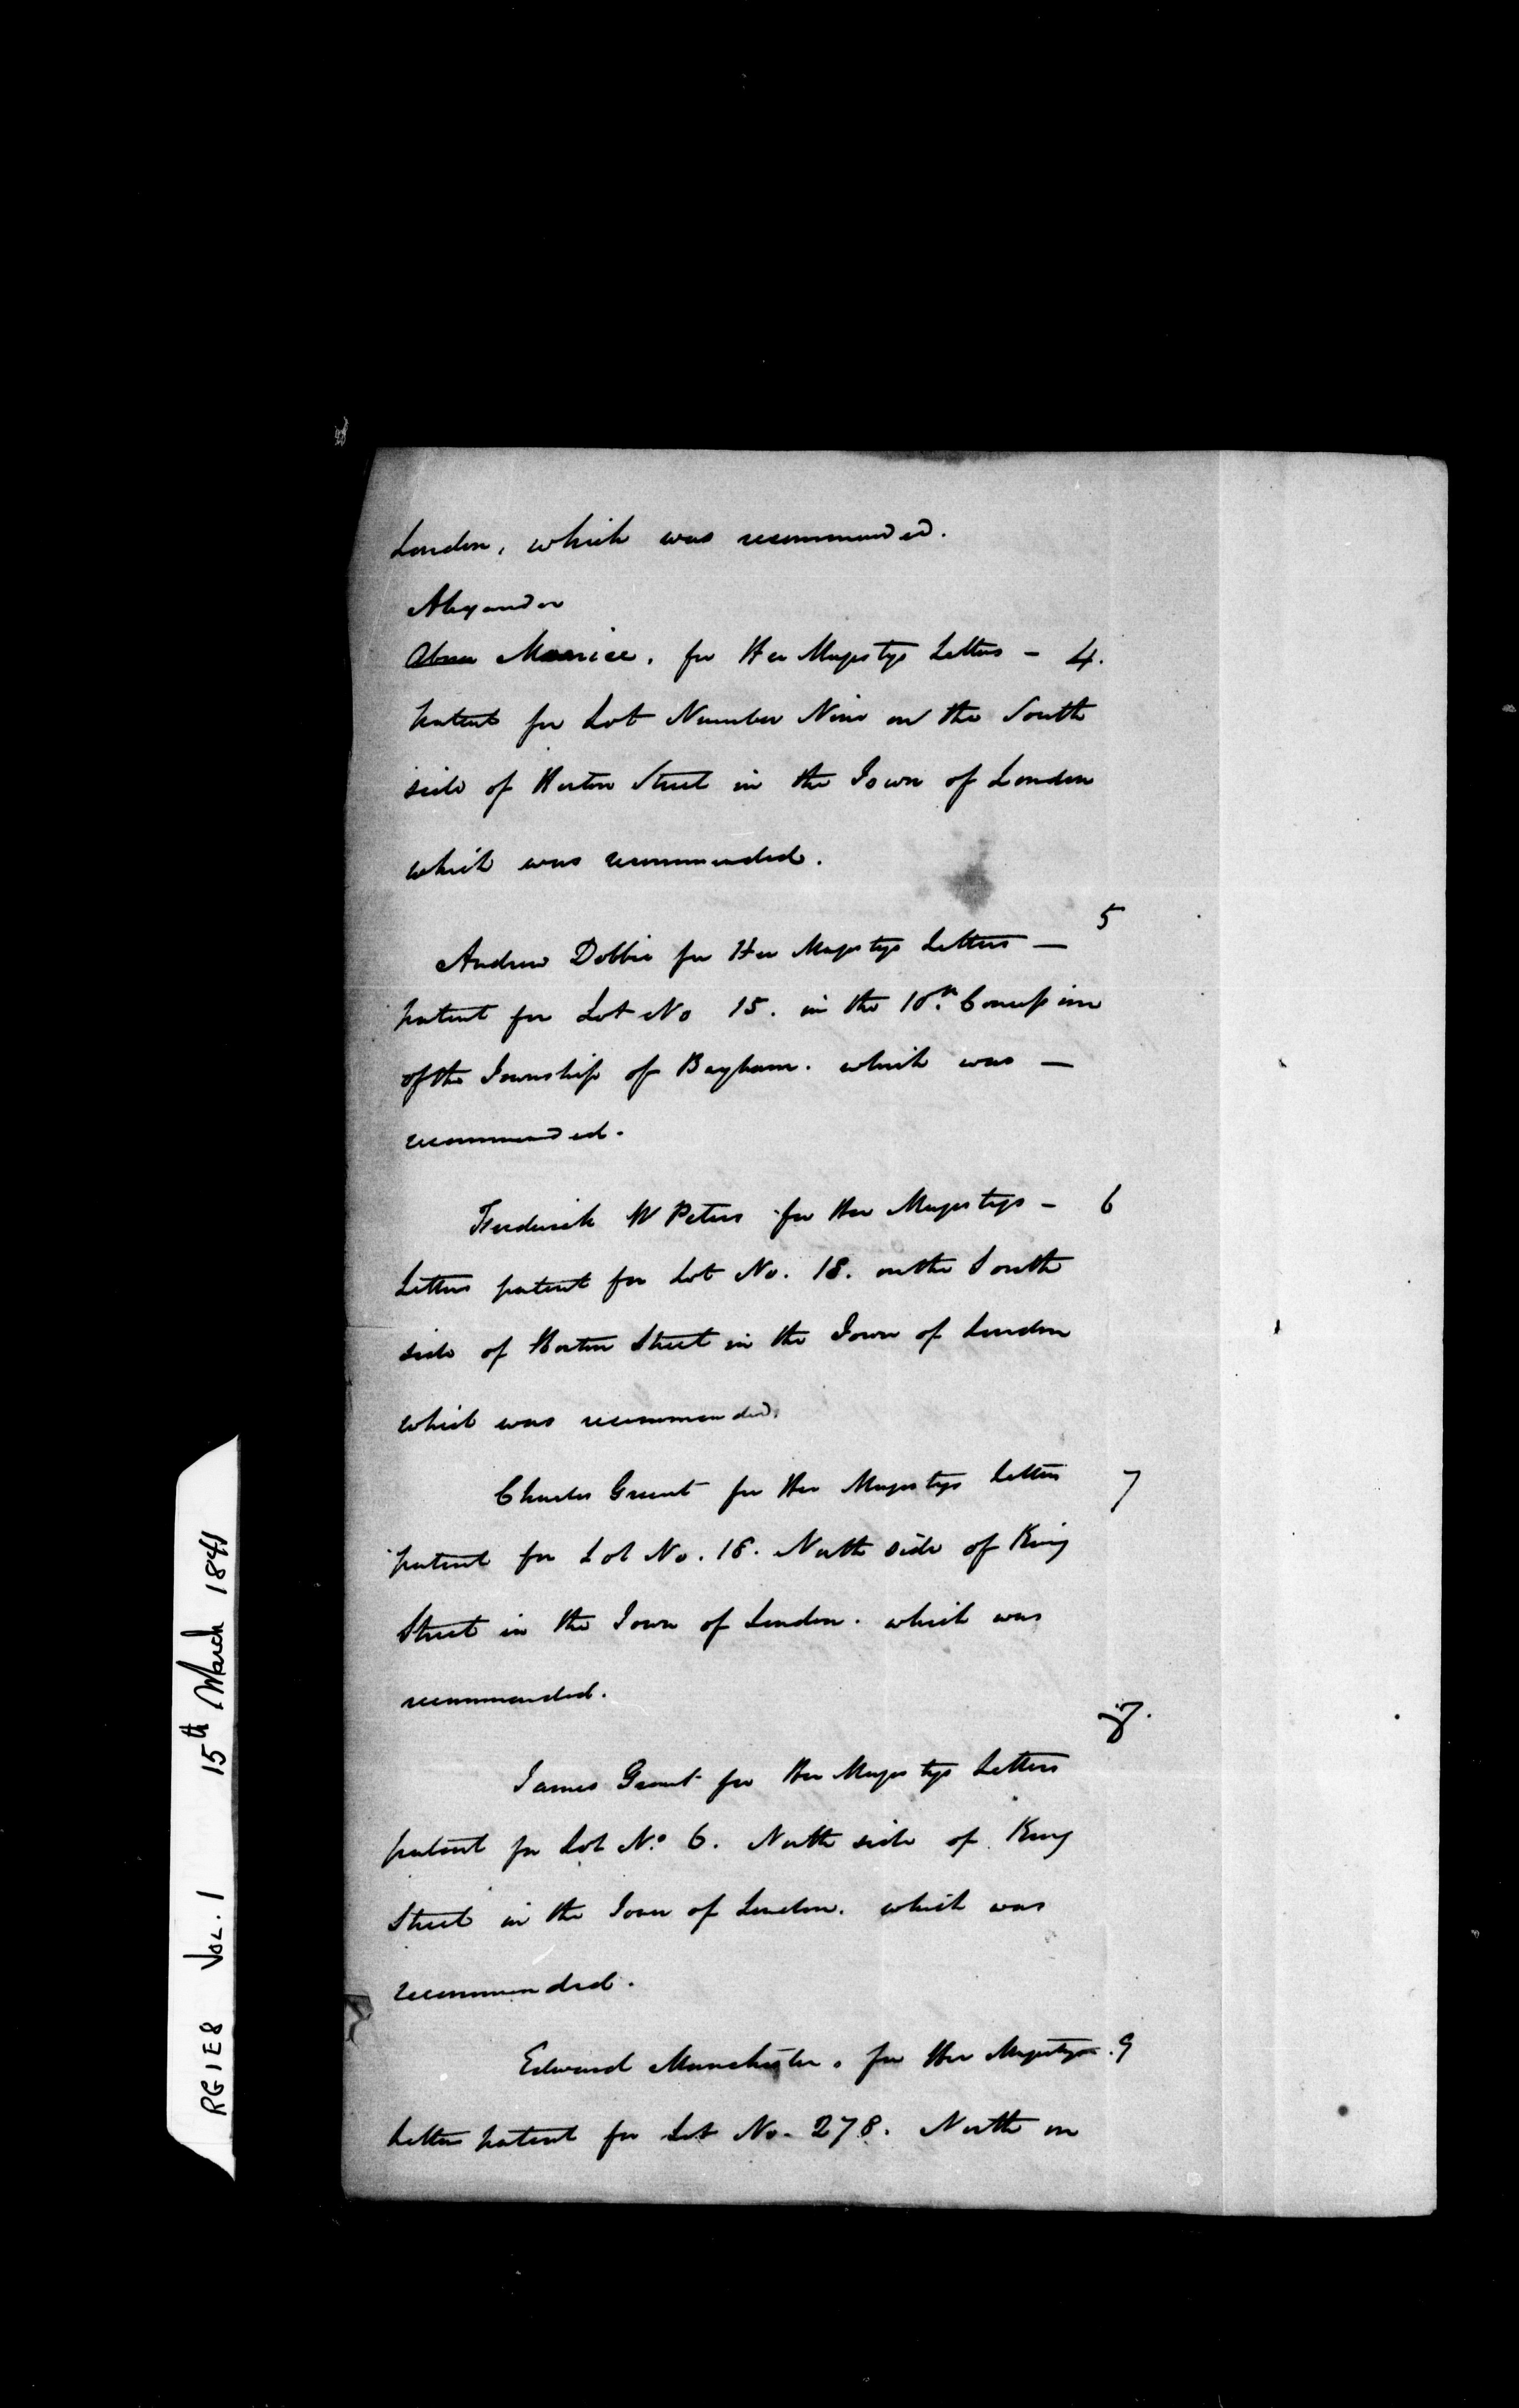 London, which was recommended.
Alexander
Abner Monice. for Her Majestys Letters - 4.
patent for Lot Number Nine on the South
side of Horton Street in the Town of London
which was recommended.
5
Andrew Dobbie for Her Majestys Letters —
patent for Lot No 15. in the 10th. Concession
of the Township of Bayham. which was —
recommended.
Frederick W Peters for Her Majestys - 6
Letters patent for Lot No. 18. on the South
side of Horton Street in the Town of London
which was recommended.
Charles Grant for Her Majestys Letters 7
patent for Lot No. 18. North side of King
Street in the Town of London. which was
recommended.
8.
James Grant for Her Majestys Letters
patent for Lot No. 6. North side of King
Street in the Town of London. which was
recommended.
Edward Manchester. for Her Majestys. 9
Letters patent for Lot No. 278. North on
RG1E8 VOL. 1 15th March 1841